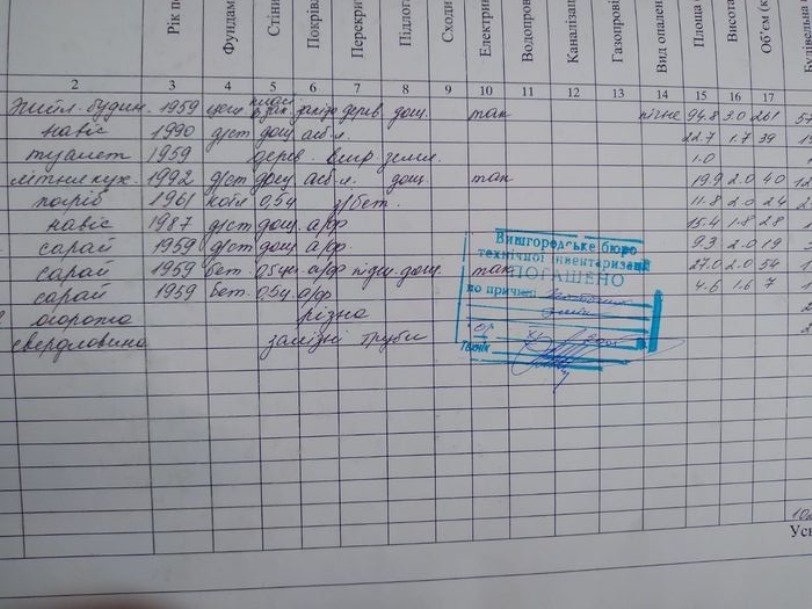 Рік по
Фундам
Стіни
Покрівл
Перекри
Підлог
Сходи
Електри
Водопро
Каналізац
Газопрові
Вид опален
Площа
Висота
Об'єм (к
Будівельна
2 3 4 5 6 7 8 9 10 11 12 13 14 15 16 17
Житл. будин. 1959 дерев дощ. так пічне 94.8 3.0 261 57
навіс 1990 д/ст дощ асб-л. 22.7 1.7 39
туалет 1959 дерев. земл. 1.0
літня кух. 1992 д/ст дощ асб-л. дощ. так 19.9 2.0 40 12
погріб 1961 0,5ц з/бет. 11.8 2.0 24
навіс 1987 д/ст дощ а/ф. 15.4 1.8 28
сарай 1959 д/ст дощ а/ф. 9.3 2.0 19
сарай 1959 бет. а/ф підш. дощ. так 27.0 2.0 54
сарай 1959 бет. 0.5ц а/ф 4.6 1.6 7
огорожа різна
свердловина залізні труби
Вишгородське бюро
технічної інвентаризації
ПОГАШЕНО
по причині
Технік
Усь